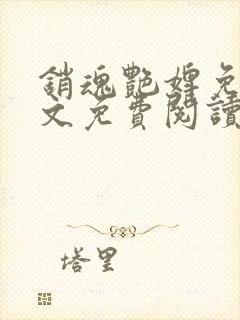 銷魂艷婢免
文免費閱讀
塔里